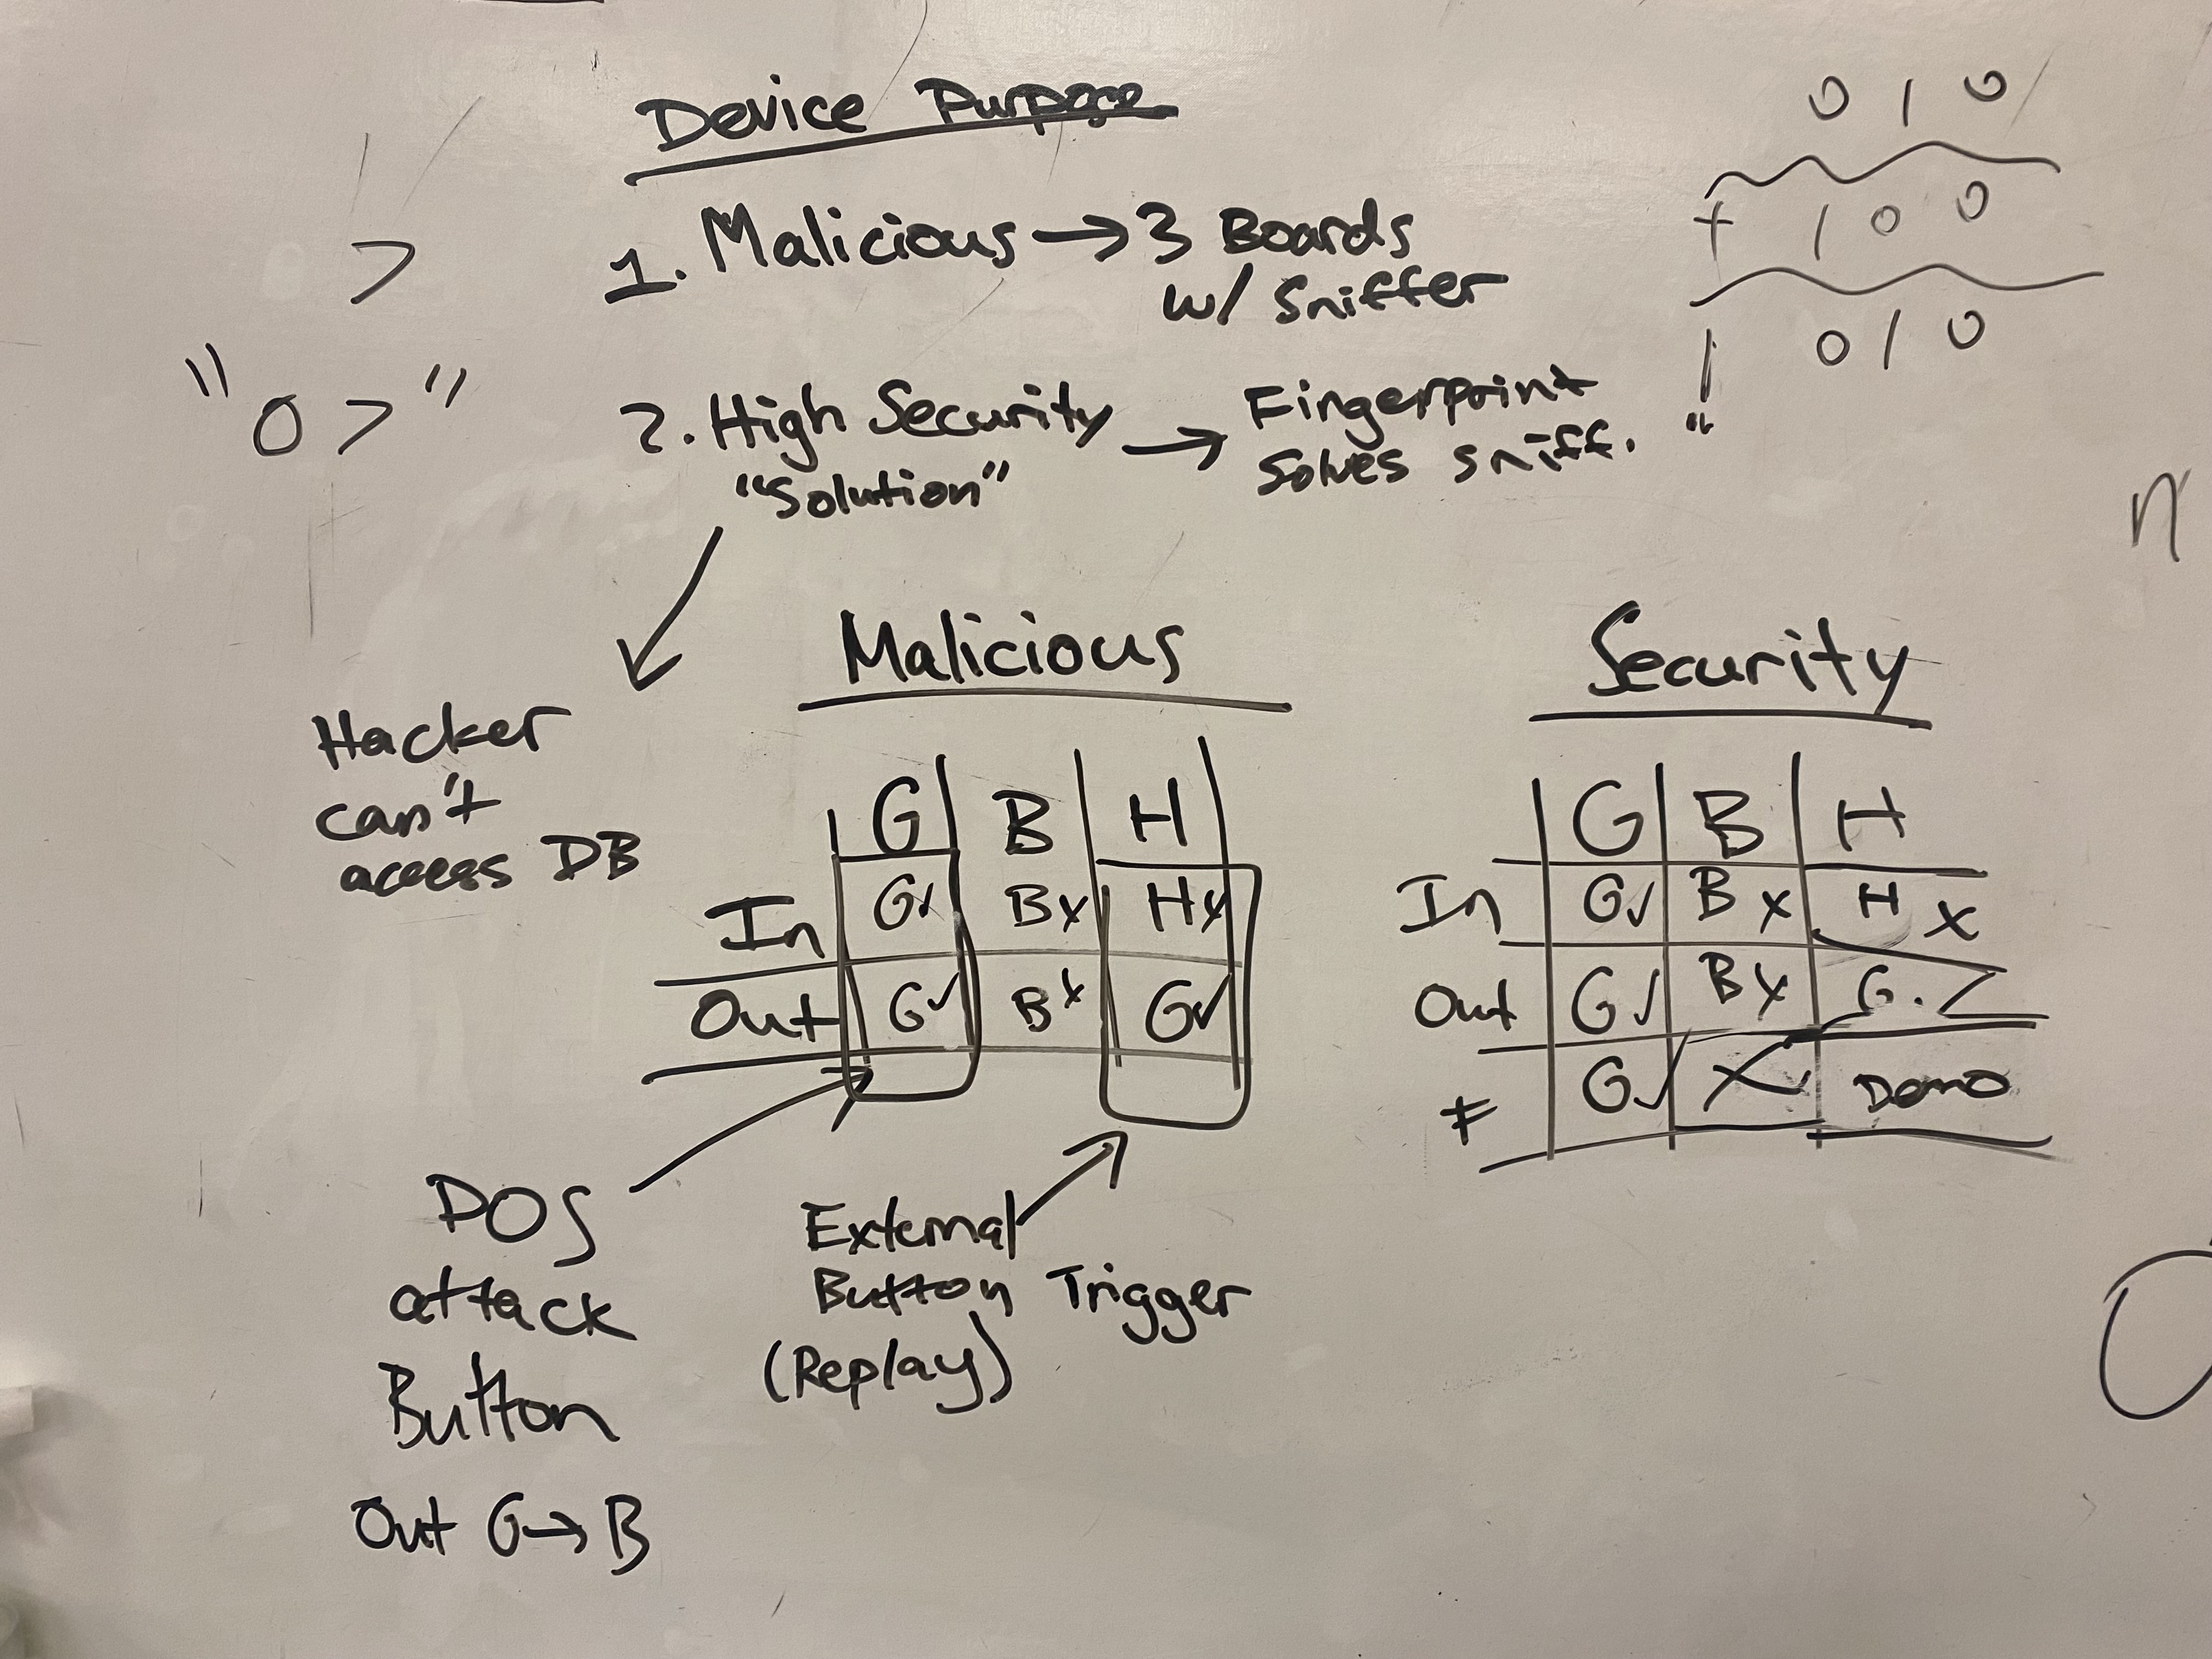 Device Purpose
1. Malicious → 3 Boards
w/ Sniffer
2. High Security → Fingerprint
"Solution" Solves sniff.
Hacker
can't
access DB
0 1 0
+ 1 0 0
1 0 1 0
>
"0>"
n
Malicious
G B H
In G✓ Bx Hx
Out G✓ Bx G✓
DOS
attack
Button
Out G→B
External
Button Trigger
(Replay)
Security
G B H
In G✓ B x H x
Out G✓ Bx G.
F G✓ X Demo